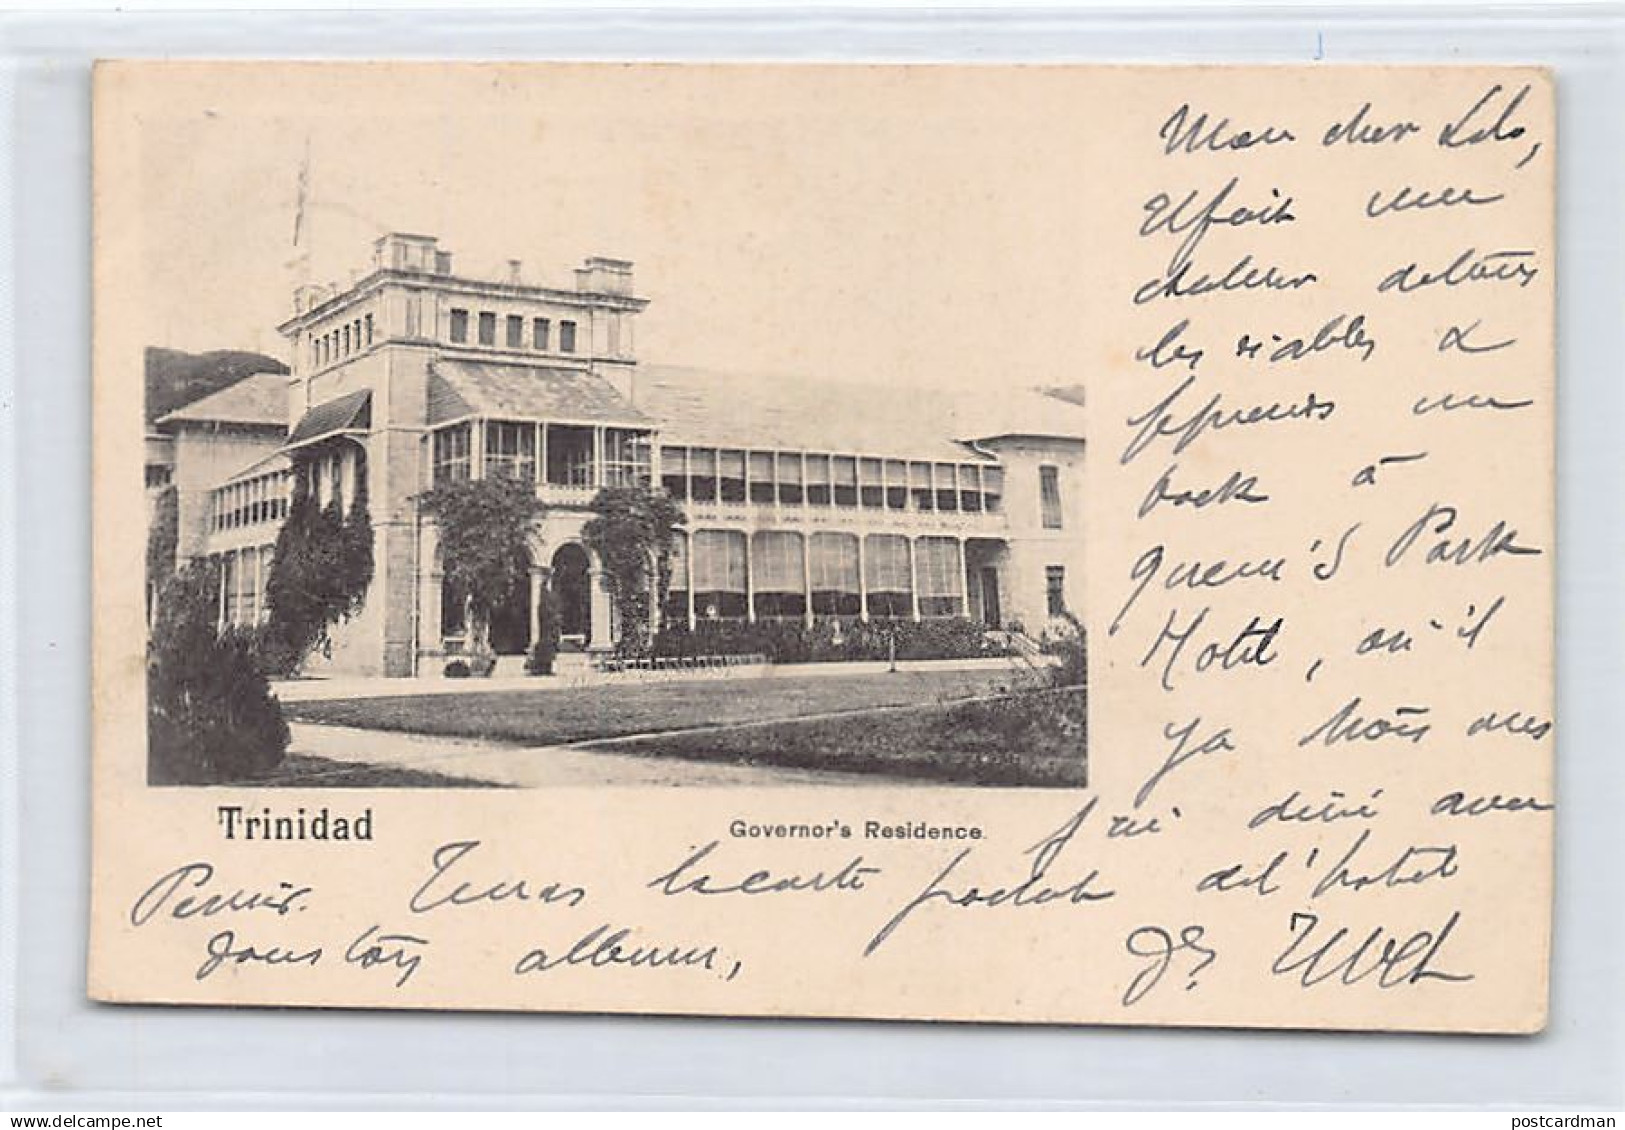 Mon cher Lolo,
Il fait une
chaleur de tous
les diables &
je prends un
bock à
Queen's Park
Hotel, où il
y a trois mes
j'ai diné avec
de l'hotel
Trinidad
Governor's Residence.
Tu auras la carte
dans ton album,
delcampe.net
postcardman